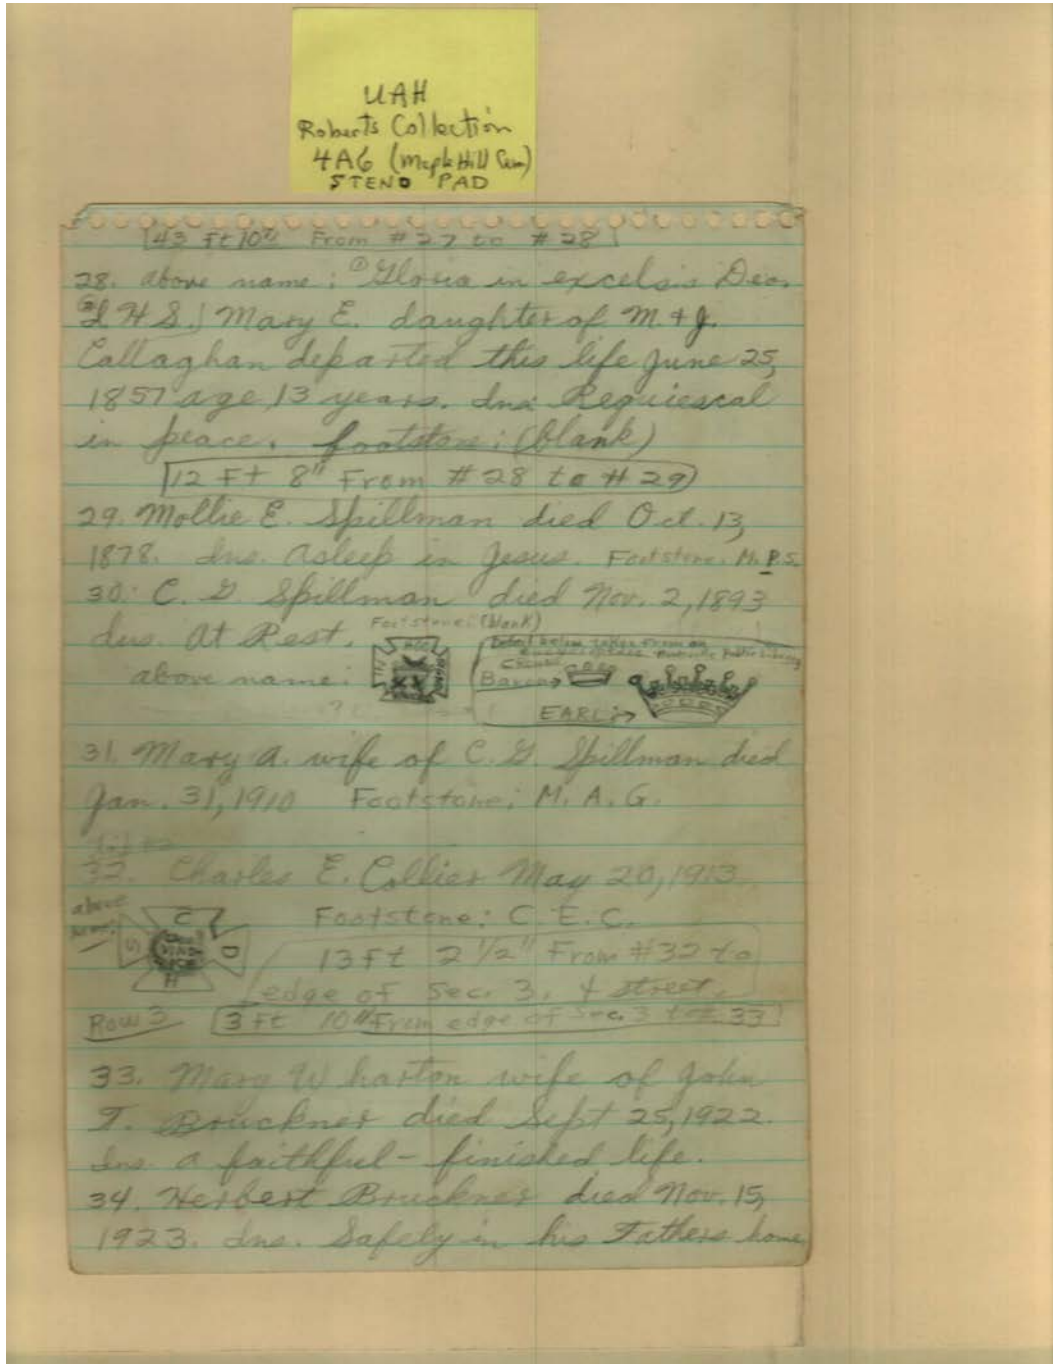 UAH
Roberts Collection
4A6 (Maple Hill Cem)
STENO PAD
43 ft 10" From #27 to #28
28. above name: ① Gloria in excelsis Deo.
② I H S.) Mary E. daughter of M. + J.
Callaghan departed this life June 25,
1857 age 13 years. Ins: Requiescat
in peace. footstone: (blank)
12 Ft 8" From #28 to #29
29. Mollie E. Spillman died Oct. 13,
1878. Ins. Asleep in Jesus. Footstone: M. P. S.
30. C. G. Spillman died Nov. 2, 1893
Ins. At Rest. Footstone: (blank)
above name:
Detail below taken from
Public Library
Crowns
Baron →
EARL: →
31. Mary A. wife of C. G. Spillman died
Jan. 31, 1910 Footstone: M. A. G.
32. Charles E. Collier May 20, 1913
above
name:
C
S
D
H
Footstone: C. E. C.
13 ft 2 1/2" From #32 to
edge of Sec. 3, & street.
Row 3 3 ft 10" From edge of Sec. 3 to # 33
33. Mary Wharton wife of John
T. Bruckner died Sept 25, 1922.
Ins. A faithful - finished life.
34. Herbert Bruckner died Nov. 15,
1923. Ins. Safely in his Fathers home